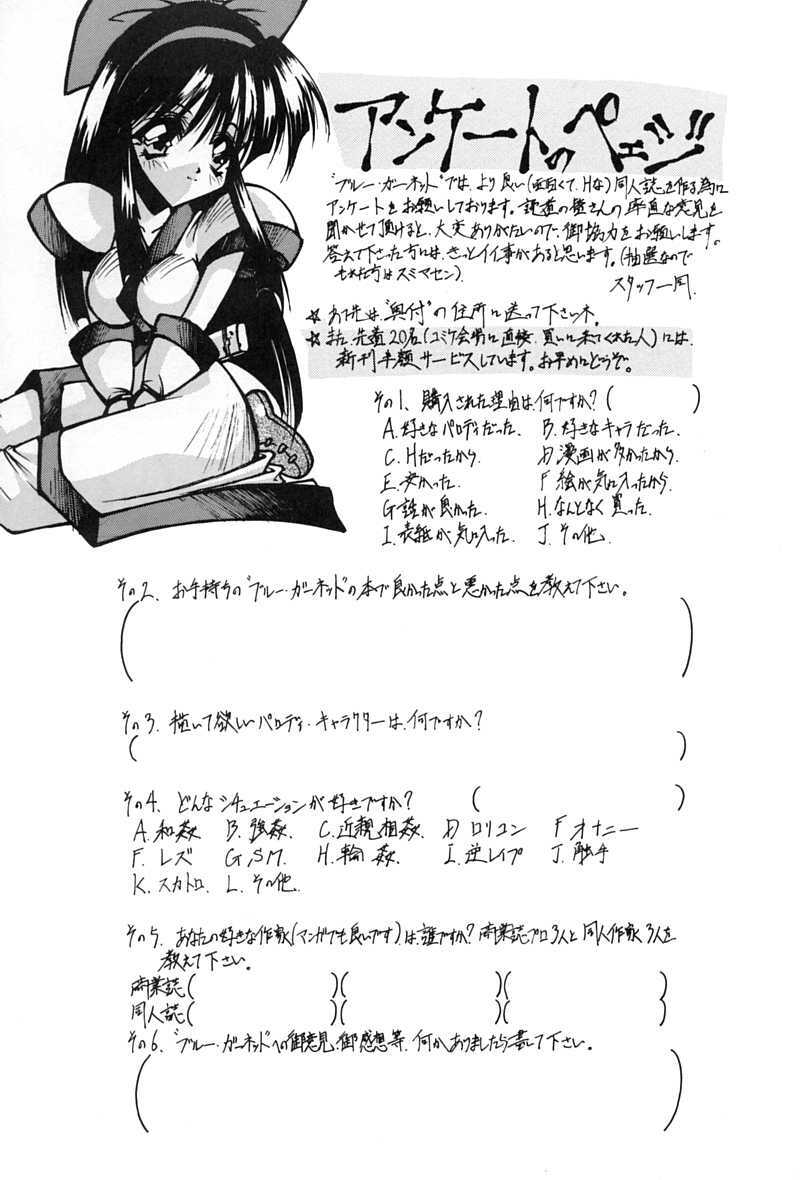 アンケートのページ!!
"ブルー・ガーネット"では、より良い(面白くて、Hな)同人誌を作る為に
アンケートをお願いしております。読者の皆さんの率直な意見を
聞かせて頂けると、大変ありがたいので、御協力をお願いします。
答えて下さった方には、きっとイイ事があると思います。(抽選なので
もれた方はスミマセン)
スタッフ一同.
☆ あて先は、"奥付"の住所に送って下さいネ。
☆ また、先着20名(コミケ会場に直接、買いに来てくれた人)には、
新刊半額サービスしています。お早めにどうぞ。
その1、購入された理由は、何ですか?( )
A.好きなパロディだった. B.好きなキャラだった.
C.Hだったから. D.漫画が多かったから.
E.安かった. F.絵が気に入ったから.
G.話が良かった. H.なんとなく買った.
I.表紙が気に入った. J.その他.
その2、お手持ちの"ブルー・ガーネット"の本で良かった点と悪かった点を教えて下さい。
( )
その3、描いて欲しいパロディ・キャラクターは、何ですか?
( )
その4、どんなシチュエーションが好きですか? ( )
A.和姦 B.強姦. C.近親相姦. D ロリコン F オナニー
F.レズ G.SM. H.輪姦. I.逆レイプ J.触手
K.スカトロ. L.その他.
その5、あなたの好きな作家(マンガでも良いです)は、誰ですか?商業誌プロ3人と同人作家3人を
教えて下さい。
商業誌( )( )( )
同人誌( )( )( )
その6、"ブルー・ガーネット"への御意見、御感想等、何かありましたら書して下さい。
( )